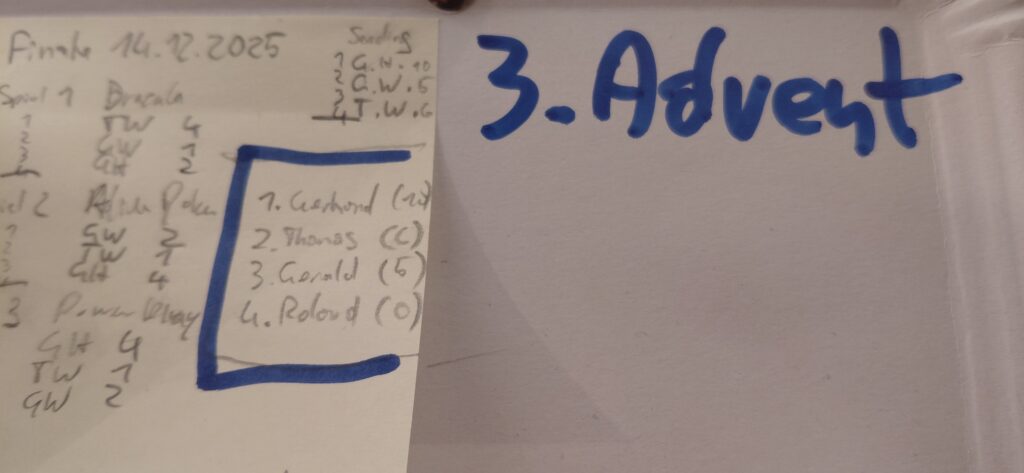 Finale 14.12.2025
Seeding
1 G.H. 10
2 G.W. 5
3 T.W. 6
4
3. Advent
Spiel 1 Dracula
1 TW 4
2 GW 1
3 GH 2
4
2
1 GW 2
2 TW 1
3 GH 4
4
1. Gerhard (10)
2. Thomas (6)
3. Gerald (5)
4. Roland (0)
3
GH 4
TW 1
GW 2